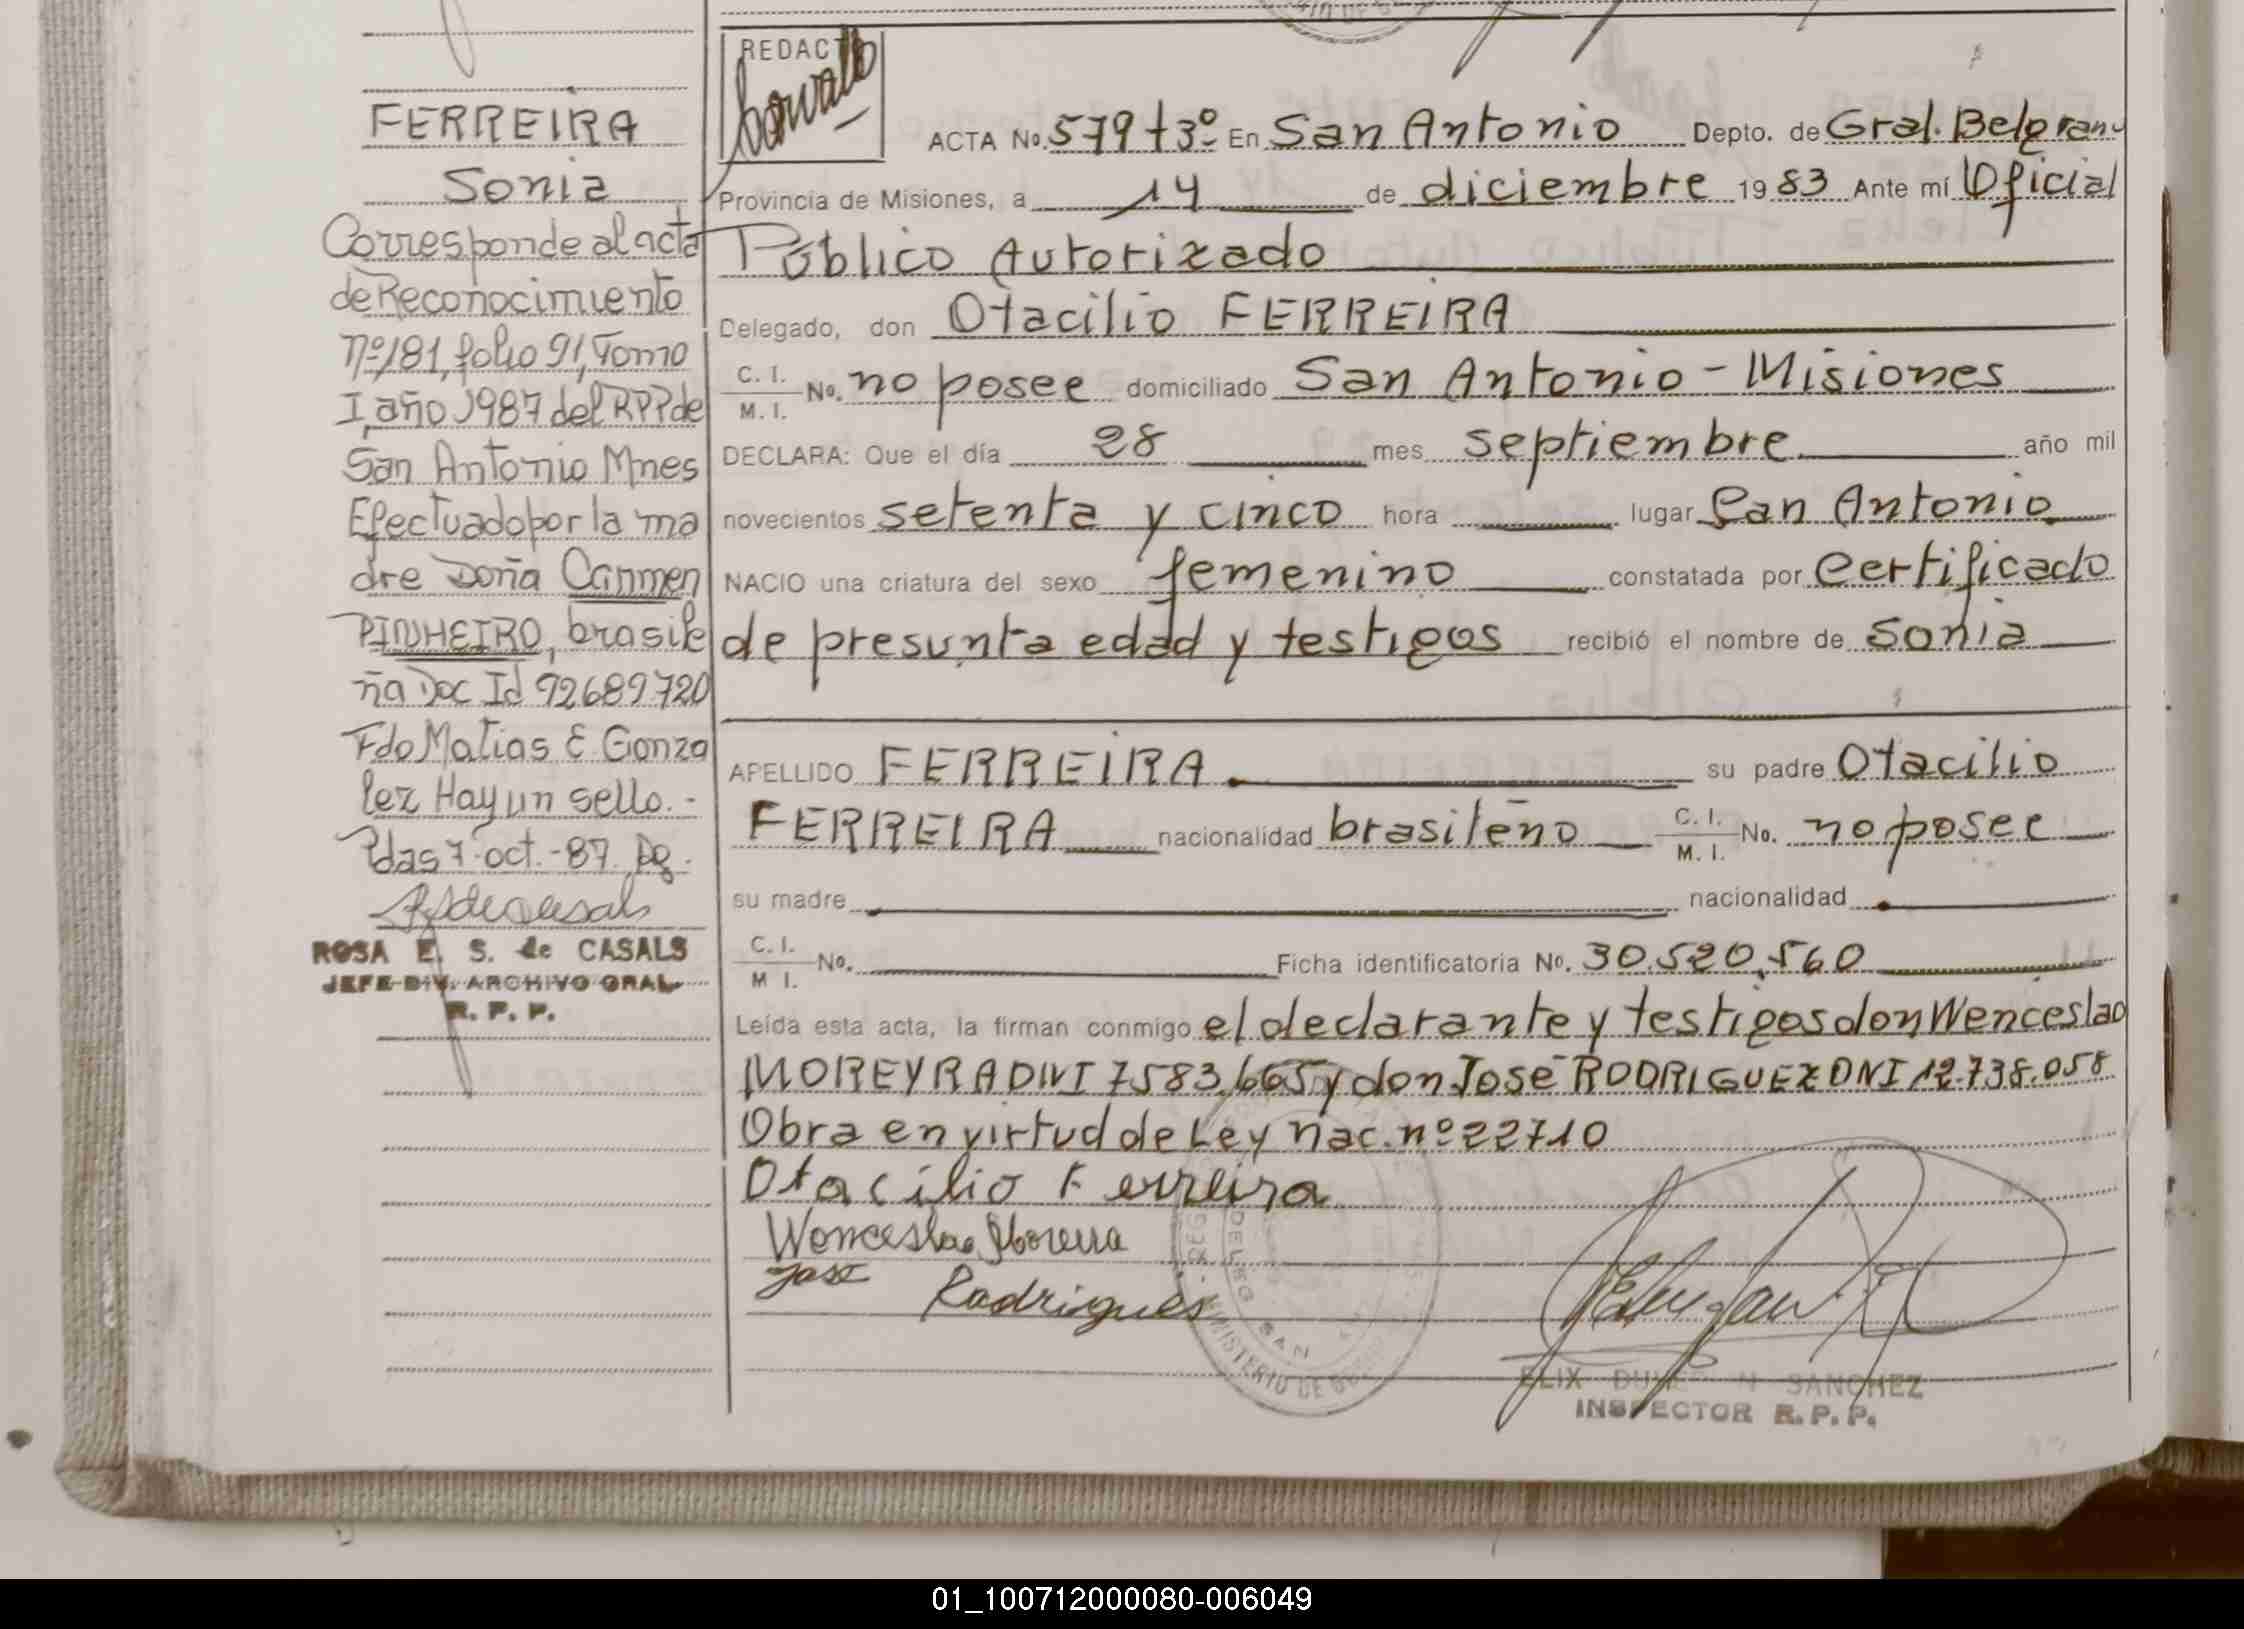 FERREIRA
Sonia
Corresponde al acta
de Reconocimiento
nº181, folio 91, Tomo
I, año 1987 del RPP de
San Antonio Mnes
Efectuado por la ma
dre Doña Carmen
PINHEIRO, brasile
ña Doc Id 92689720
Fdo Matias E. Gonza
lez Hay un sello.-
Pdas 7-oct.-87.
ROSA E. S. de CASALS
JEFE DIV. ARCHIVO GRAL
R. P. P.
REDACT
ACTA No. 579 t3º En San Antonio Depto. de Gral. Belgrano
Provincia de Misiones, a 14 de diciembre 1983 Ante mí Oficial
Público Autorizado
Delegado, don Otacilio FERREIRA
C. I. / M. I. No. no posee domiciliado San Antonio - Misiones
DECLARA: Que el día 28 mes septiembre año mil
novecientos setenta y cinco hora lugar San Antonio
NACIO una criatura del sexo femenino constatada por Certificado
de presunta edad y testigos recibió el nombre de Sonia
APELLIDO FERREIRA. su padre Otacilio
FERREIRA nacionalidad brasileño C. I. / M. I. No. no posee
su madre nacionalidad
C. I. / M I. No. Ficha identificatoria No. 30.520.560
Leída esta acta, la firman conmigo el declarante y testigos don Wenceslao
MOREYRA DNI 7583.665 y don José RODRIGUEZ DNI 12.738.058
Obra en virtud de Ley nac. nº 22710
Otacilio Ferreira
Wenceslao Moreira
Jose Rodrigues
MINISTERIO DE GOBIERNO
SAN
ELIX SANCHEZ
INSPECTOR R. P. P.
01_100712000080-006049